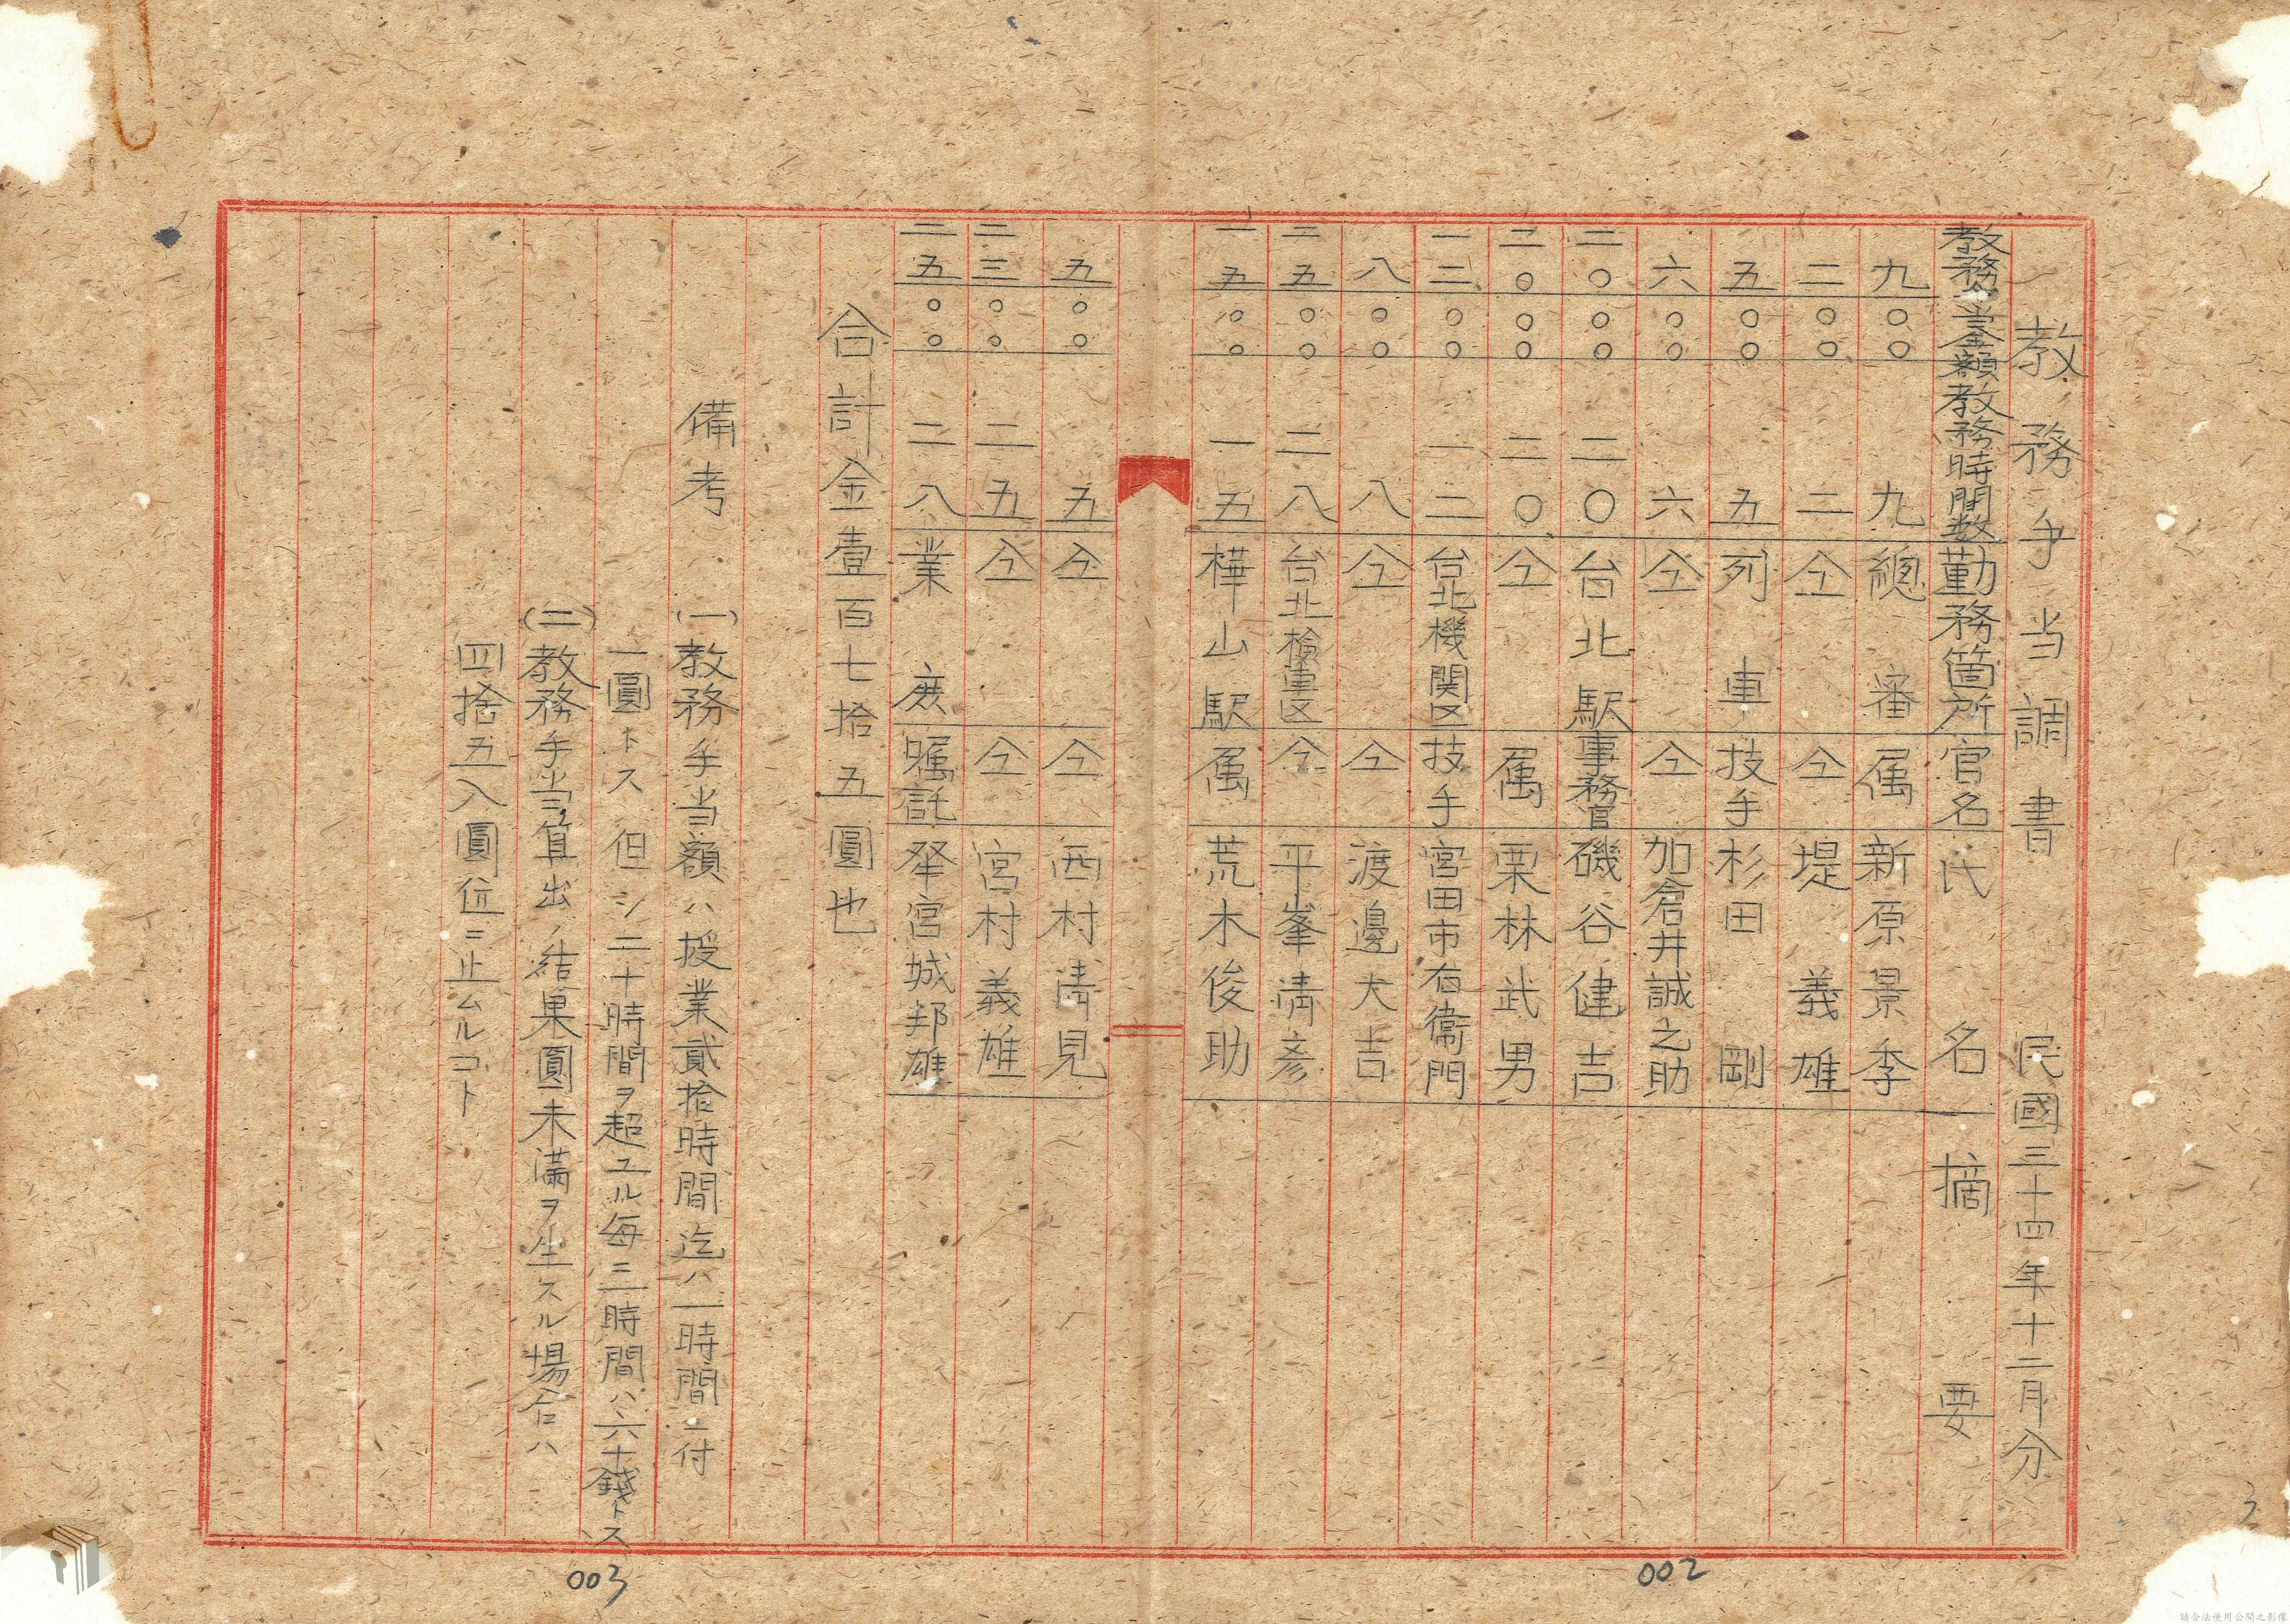 教務手当調書 民國三十四年十二月分
教務手当金額 教務時間数 勤務箇所 官名 氏名 摘要
九〇〇 九 總審 属 新原景李
二〇〇 二 仝 仝 堤義雄
五〇〇 五 列車 技手 杉田剛
六〇〇 六 仝 仝 加倉井誠之助
二〇〇〇 二〇 台北駅 事務官 磯谷健吉
二〇〇〇 二〇 仝 属 栗林武男
一二〇〇 一二 台北機関区 技手 宮田市右衛門
八〇〇 八 仝 仝 渡邊大吉
二五〇〇 二八 台北検車区 仝 平峯清彦
一五〇〇 一五 樺山駅 属 荒木俊助
五〇〇 五 仝 仝 西村清見
二三〇〇 二五 仝 仝 宮村義雄
二五〇〇 二八 業庶 嘱託 宮城邦雄
合計金壹百七拾五圓也
備考 (一)教務手当額ハ授業貳拾時間迄ハ一時間ニ付
一圓トス 但シ二十時間ヲ超ユル毎三時間ハ六十錢トス
(二)教務手当ヲ算出ノ結果圓未滿ヲ生スル場合ハ
四捨五入圓位ニ止ムルコト
003
002
2
請合法使用公開之影像